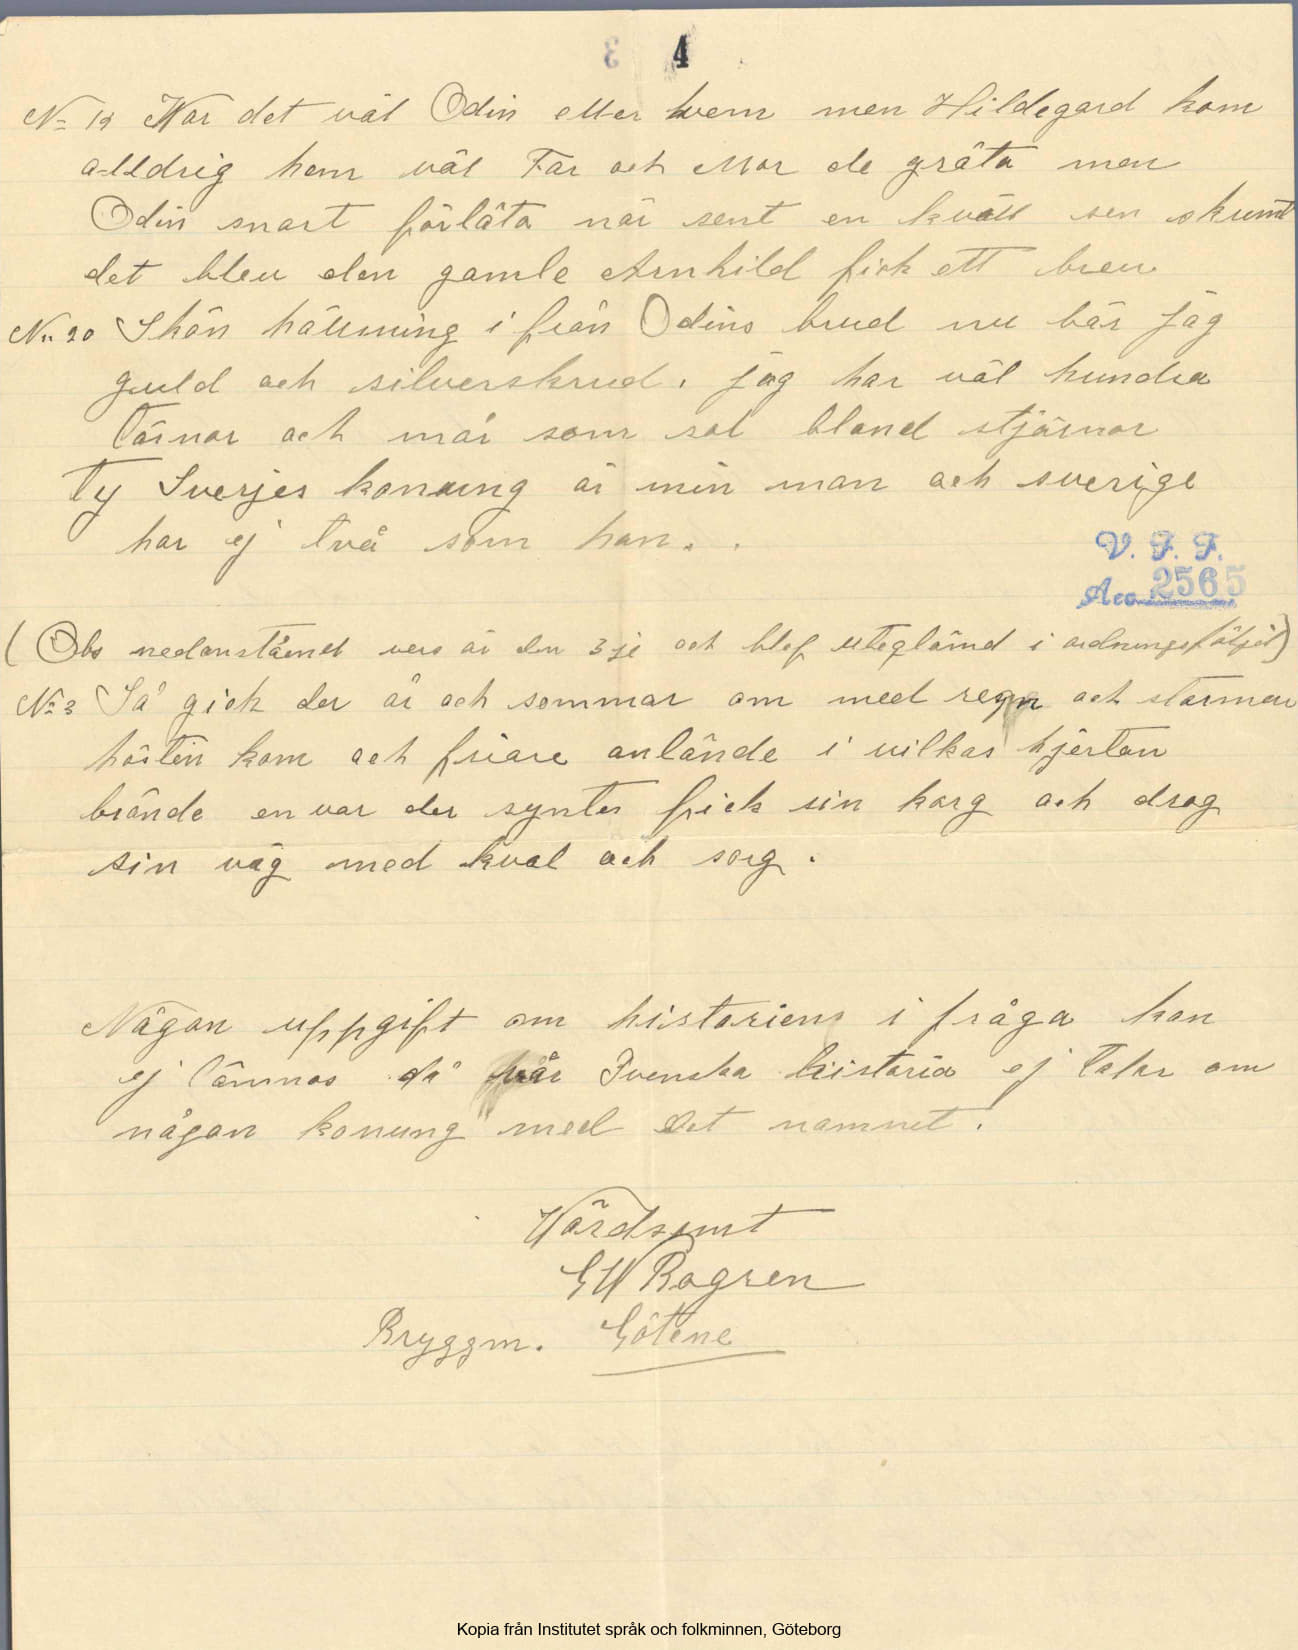 4
No 19 War det väl Odin eller hvem men Hildegard kom
alldrig hem väl Far och Mor de gråta men
Odin snart förlåta när sent en kväll sen skumt
det blev den gamle Arnhild fick ett brev
No 20 Skön hälsning i från Odins brud nu bär jag
guld och silverskrud. jag har väl hundra
tärnor och mår som sol bland stjärnor
Ty Sverjes konung är min man och sverige
har ej två som han..
V. F. F.
Acc 2565
(Obs nedanståend vers är den 3je och blef uteglömd i ordningsföljd)
No 3 Så gick der år och sommar om med regn och stormar
hösten kom och friare anlände i vilkas hjertan
brände en var der syntes fick sin korg och drog
sin väg med kval och sorg.
Någon uppgift om historiens i fråga kan
ej lämnas då vår Svenska historia ej talar om
någon konung med det namnet.
Värdsamt
GW Rogren
Bryggm. Götene
Kopia från Institutet språk och folkminnen, Göteborg